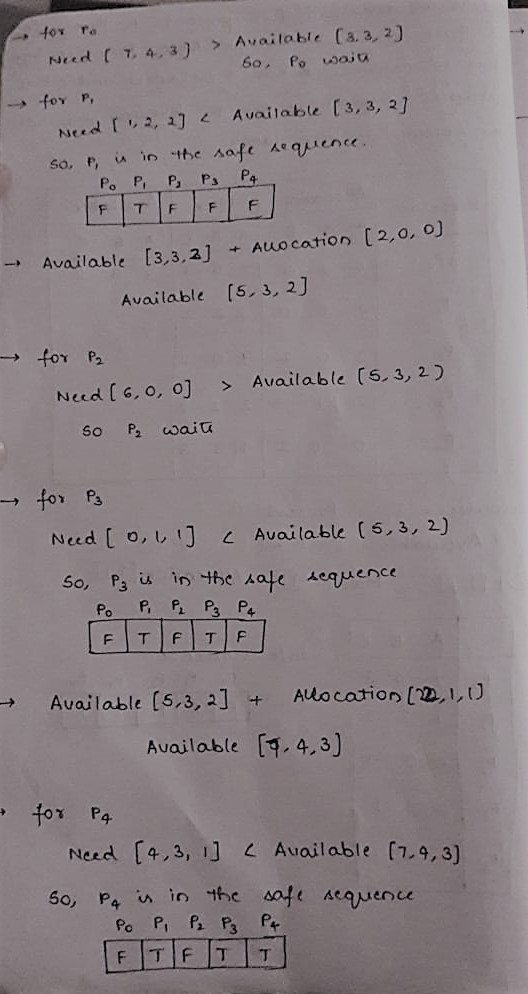 → for P0
Need [ 7, 4, 3 ] > Available [3, 3, 2]
So, P0 waits
→ for P1
Need [ 1, 2, 2 ] < Available [3, 3, 2]
So, P1 is in the safe sequence.
P0 P1 P2 P3 P4
F T F F F
→ Available [3,3,2] + Allocation [2,0,0]
Available [5,3,2]
→ for P2
Need [6,0,0] > Available [5,3,2)
so P2 waits
→ for P3
Need [ 0, 1, 1] < Available [5,3,2)
So, P3 is in the safe sequence
P0 P1 P2 P3 P4
F T F T F
→ Available [5,3,2] + Allocation [2,1,1]
Available [7,4,3]
→ for P4
Need [4,3,1] < Available [7,4,3]
So, P4 is in the safe sequence
P0 P1 P2 P3 P4
F T F T T